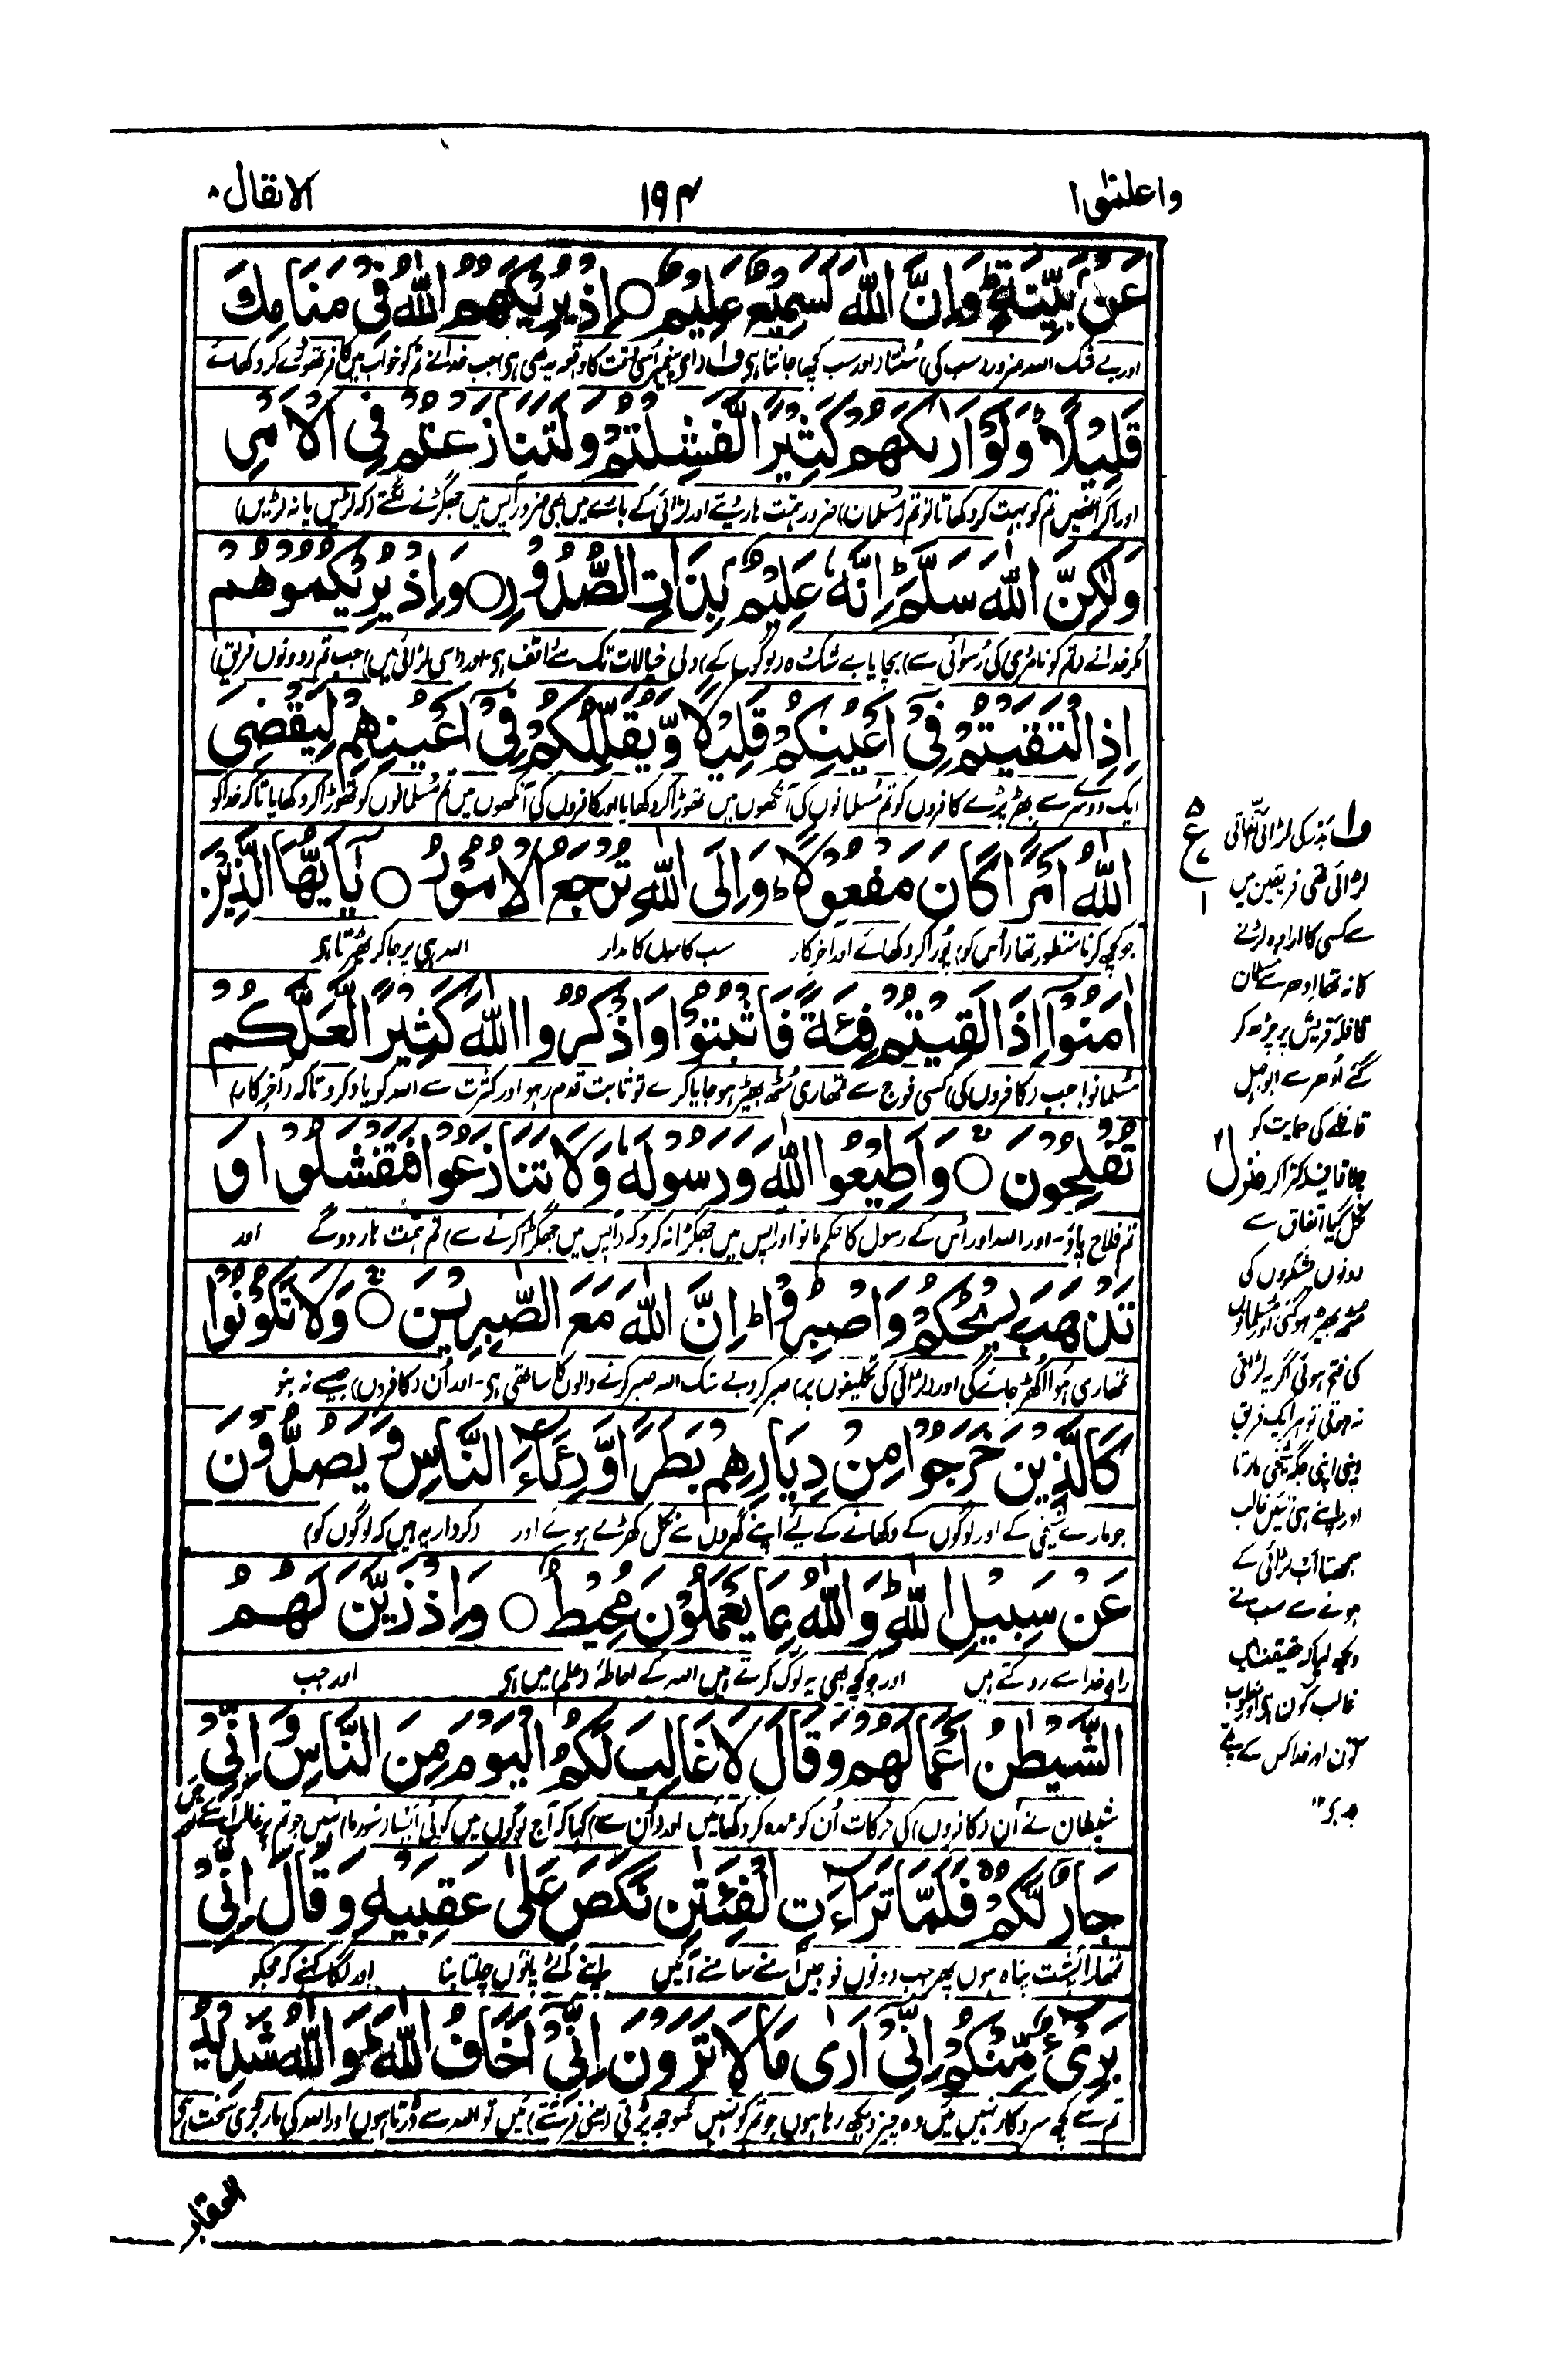 واعلموا ۱۰
۱۹۴
الانفال ۸
عَنْۢ بَيِّنَةٍ ؕ وَاِنَّ اللّٰهَ لَسَمِيْعٌ عَلِيْمٌ ○ اِذْ يُرِيْكَهُمُ اللّٰهُ فِیْ مَنَامِكَ
اور بے شک اللہ ضرور (سب کی) سُنتا (اور سب کچھ) جانتا ہی ف۱ (ای پیغمبر اُسی وقت کا واقعہ یہ بھی ہی) جب خدا نے تم کو خواب میں کافر تھوڑے کر دکھائے
قَلِيْلًا ؕ وَلَوْ اَرٰىكَهُمْ كَثِيْرًا لَّفَشِلْتُمْ وَلَتَنَازَعْتُمْ فِی الْاَمْرِ
اور اگر انھیں تم کو بہت کر دکھاتا تو تم (مسلمان) ضرور ہمت ہار دیتے اور لڑائی کے بارے میں بھی ضرور آپس میں جھگڑنے لگتے (کہ لڑیں یا نہ لڑیں)
وَلٰكِنَّ اللّٰهَ سَلَّمَ ؕ اِنَّهٗ عَلِيْمٌۢ بِذَاتِ الصُّدُوْرِ ○ وَاِذْ يُرِيْكُمُوْهُمْ
مگر خدا نے (تم کو نامردی کی رُسوائی سے) بچایا بے شک وہ (لوگوں کے) دلی خیالات تک سے واقف ہی اور (اسی لڑائی میں) جب تم (دونوں فریق)
اِذِ الْتَقَيْتُمْ فِیْۤ اَعْيُنِكُمْ قَلِيْلًا وَّيُقَلِّلُكُمْ فِیْۤ اَعْيُنِهِمْ لِيَقْضِیَ
ایک دوسرے سے بھڑ پڑے کافروں کو تم مُسلمانوں کی آنکھوں میں تھوڑا کر دکھایا اور کافروں کی آنکھوں میں تم مُسلمانوں کو تھوڑا کر دکھایا تاکہ خدا کو
اللّٰهُ اَمْرًا كَانَ مَفْعُوْلًا ؕ وَاِلَی اللّٰهِ تُرْجَعُ الْاُمُوْرُ ○ يٰۤاَيُّهَا الَّذِيْنَ
جو کچھ کرنا منظور تھا (اُس کو) پُورا کر دکھائے اور آخر کار سب کاموں کا مدار اللہ ہی پر جا کر ٹھیرتا ہی
اٰمَنُوْۤا اِذَا لَقِيْتُمْ فِئَةً فَاثْبُتُوْا وَاذْكُرُوا اللّٰهَ كَثِيْرًا لَّعَلَّكُمْ
مُسلمانو! جب (کافروں کی) کسی فوج سے تمھاری مُٹھ بھیڑ ہو جایا کرے تو ثابت قدم رہو اور کثرت سے اللہ کو یاد کرو تاکہ (آخر کار)
تُفْلِحُوْنَ ○ وَاَطِيْعُوا اللّٰهَ وَرَسُوْلَهٗ وَلَا تَنَازَعُوْا فَتَفْشَلُوْا وَ
تم فلاح پاؤ - اور اللہ اور اُس کے رسول کا حکم مانو اور آپس میں جھگڑا نہ کرو کہ (آپس میں جھگڑا کرنے سے) تم ہمت ہار دو گے اور
تَذْهَبَ رِيْحُكُمْ وَاصْبِرُوْا ؕ اِنَّ اللّٰهَ مَعَ الصّٰبِرِيْنَ ○ وَلَا تَكُوْنُوْا
تمھاری ہوا اُکھڑ جائے گی اور (لڑائی کی تکلیفوں پر) صبر کرو بے شک اللہ صبر کرنے والوں کا ساتھی ہی - اور اُن (کافروں) جیسے نہ بنو
كَالَّذِيْنَ خَرَجُوْا مِنْ دِيَارِهِمْ بَطَرًا وَّرِئَآءَ النَّاسِ وَيَصُدُّوْنَ
جو مارے شیخی کے اور لوگوں کے دکھانے کے لیے اپنے گھروں سے نکل کھڑے ہوئے اور (کردار یہ ہیں کہ لوگوں کو)
عَنْ سَبِيْلِ اللّٰهِ ؕ وَاللّٰهُ بِمَا يَعْمَلُوْنَ مُحِيْطٌ ○ وَاِذْ زَيَّنَ لَهُمُ
راہِ خدا سے روکتے ہیں اور جو کچھ بھی یہ لوگ کرتے ہیں اللہ کے احاطۂ (علم) میں ہی اور جب
الشَّيْطٰنُ اَعْمَالَهُمْ وَقَالَ لَا غَالِبَ لَكُمُ الْيَوْمَ مِنَ النَّاسِ وَاِنِّیْ
شیطان نے اُن (کافروں) کی حرکات اُن کو عمدہ کر دکھائیں اور (اُن سے) کہا کہ آج لوگوں میں کوئی (ایسا سُورما) نہیں جو تم پر غالب آسکے اور میں
جَارٌ لَّكُمْ ۚ فَلَمَّا تَرَآءَتِ الْفِئَتٰنِ نَكَصَ عَلٰی عَقِبَيْهِ وَقَالَ اِنِّیْ
تمھارا پُشت پناہ ہوں پھر جب دونوں فوجیں آمنے سامنے آئیں اپنے اُلٹے پاؤں چلتا بنا اور لگا کہنے کہ مجھکو
بَرِیْٓءٌ مِّنْكُمْ اِنِّیْۤ اَرٰی مَا لَا تَرَوْنَ اِنِّیْۤ اَخَافُ اللّٰهَ ؕ وَاللّٰهُ شَدِيْدُ
تم سے کچھ سروکار نہیں میں وہ چیز دیکھ رہا ہوں جو تم کو نہیں سوجھ پڑتی (یعنی فرشتے) میں تو اللہ سے ڈرتا ہوں اور اللہ کی مار بڑی سخت ہی
ع
ف۱ بدر کی لڑائی اتفاقی
لڑائی تھی فریقین میں
سے کسی کا ارادہ لڑنے
کا نہ تھا اِدھر سے مسلمان
قافلۂ قریش پر چڑھ کر
گئے اُدھر سے ابو جہل
قافلے کی حمایت کو
چلا قافلہ کترا کر
نکل گیا اتفاق سے
دونوں لشکروں کی
مٹھ بھیڑ ہو گئی اور مسلمانوں
کی فتح ہوئی اگر یہ لڑائی
نہ ہوتی تو ہر ایک فریق
اپنی اپنی جگہ شیخی مارتا
اور اپنے ہی تئیں غالب
سمجھتا اب لڑائی کے
ہونے سے سب نے
دیکھ لیا کہ حقیقت میں
غالب کون ہی اور مغلوب
کون اور خدا کس کے پلے
پر ہی ۱۲
منزل ۲
العقاب